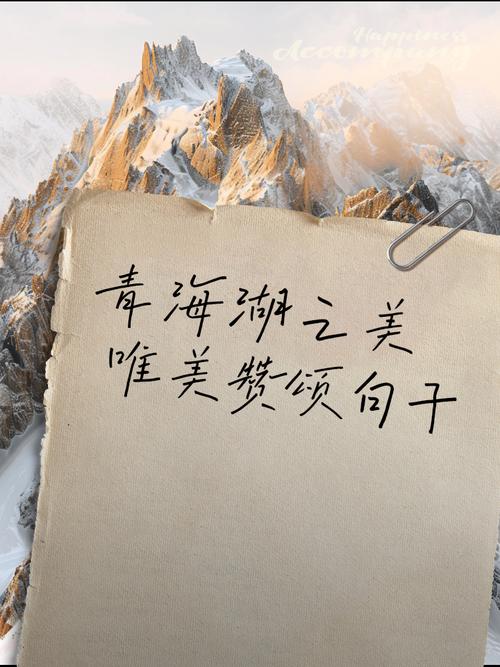 Happiness
Accompany
青海湖之美
唯美赞颂句子